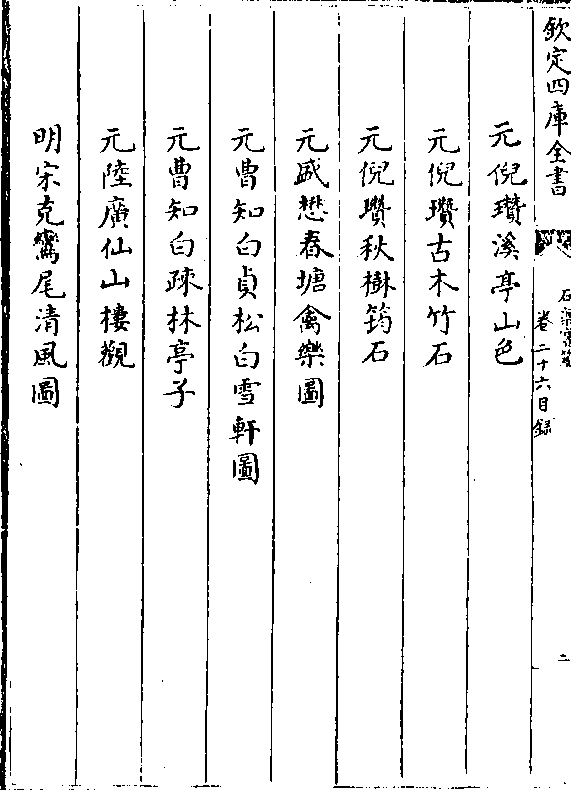 欽定四庫全書
石渠寶笈
卷二十六目録
二
元倪瓚溪亭山色
元倪瓚古木竹石
元倪瓚秋樹筠石
元盛懋春塘禽樂圖
元曹知白貞松白雪軒圖
元曹知白疎林亭子
元陸廣仙山樓觀
明宋克鸞尾清風圖